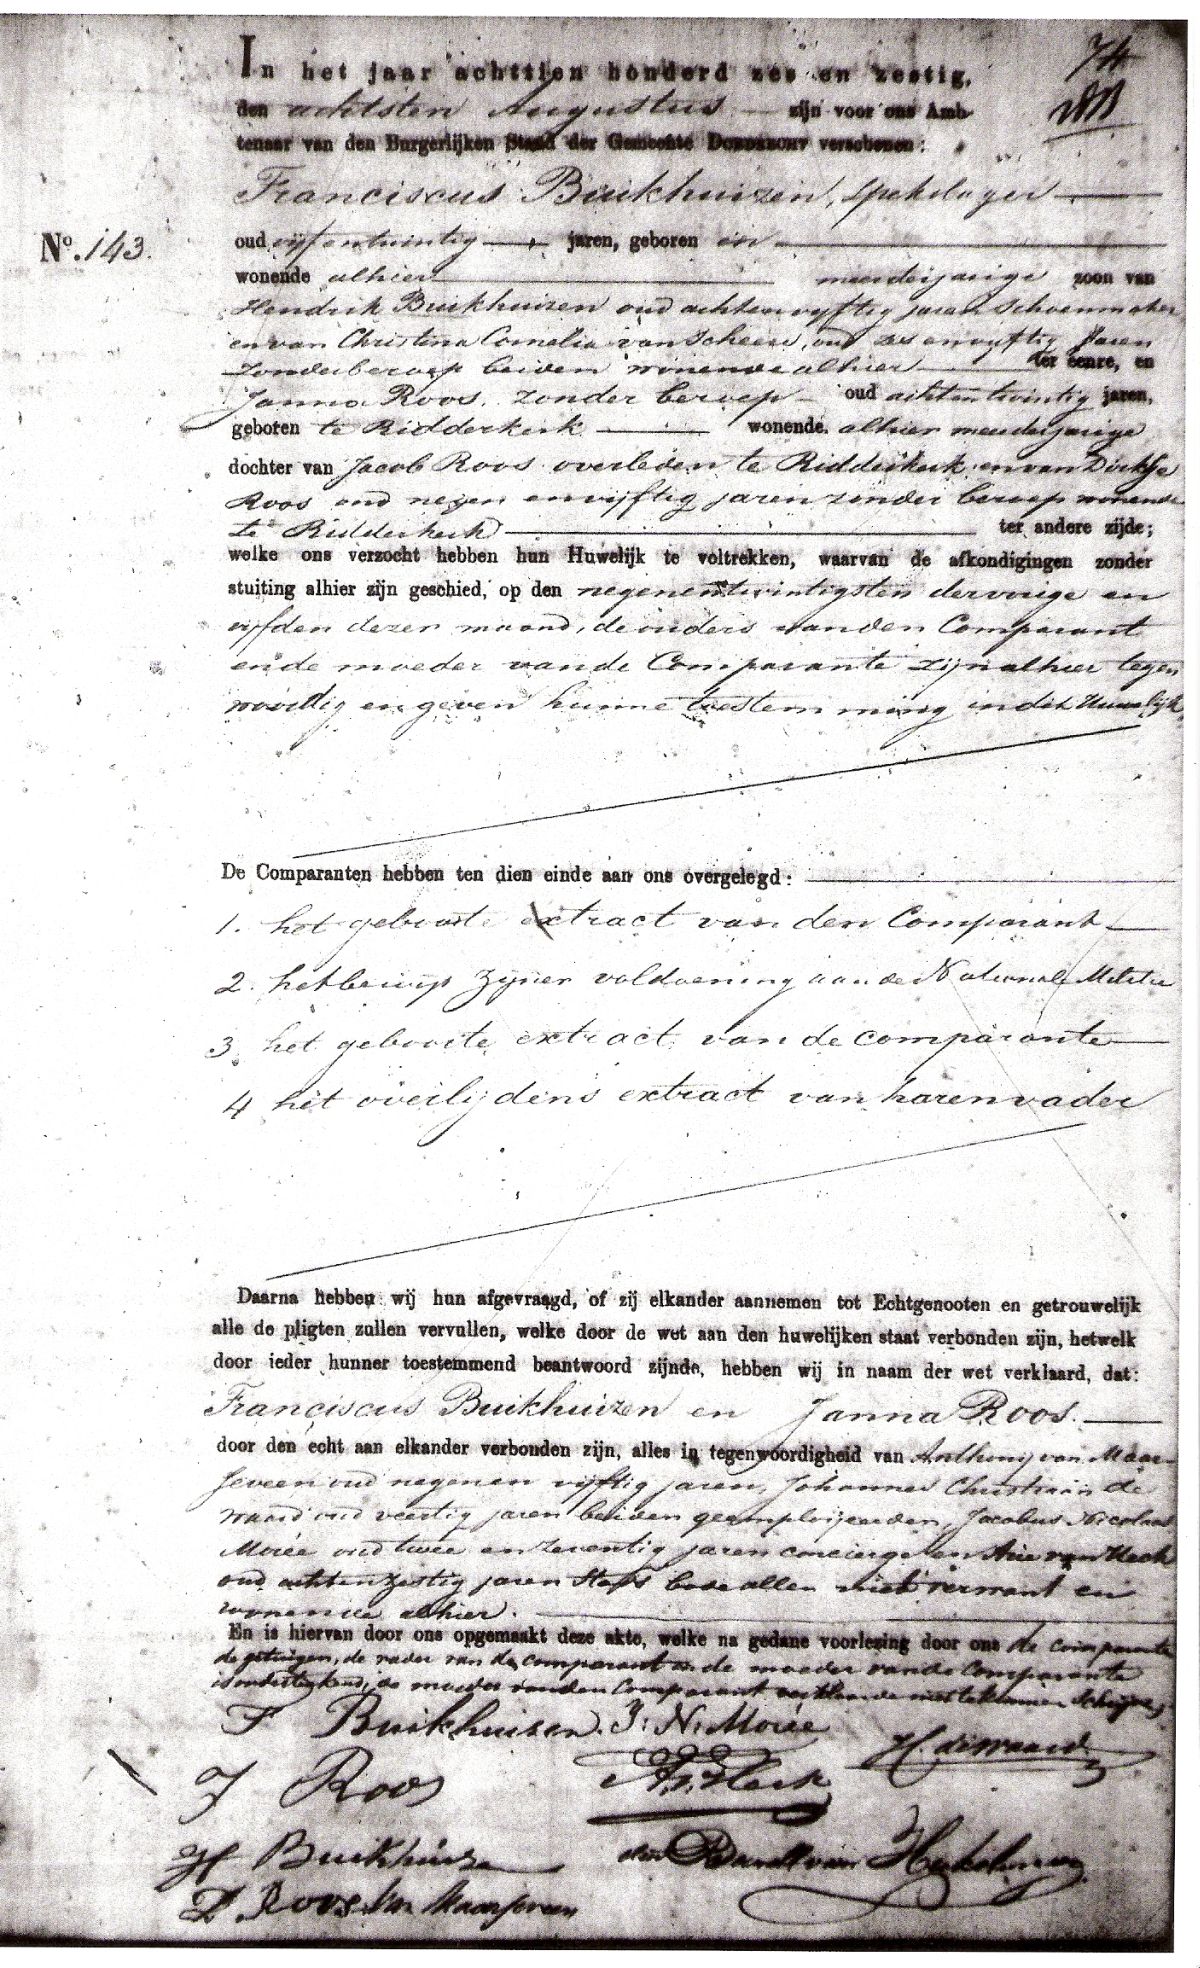 In het jaar achttien honderd zes en zestig,
74
den achtsten Augustus zijn voor ons Amb-
tenaar van den Burgerlijken Stand der Gemeente Dordrecht verschenen:
Franciscus Buikhuizen, Spekslager
No. 143.
oud vijfentwintig jaren, geboren en
wonende alhier meerderjarige zoon van
Hendrik Buikhuizen oud achtenvyftig jaren Schoenmaker
en van Christina Cornelia van Scheers, oud zes envijftig Jaren
Zonder beroep beiden wonende alhier ter eenre, en
Janna Roos, zonder beroep oud achtentwintig jaren,
geboren te Ridderkerk wonende alhier meerderjarige
dochter van Jacob Roos overleden te Ridderkerk en van Dirkje
Roos oud negen envijftig jaren zonder beroep wonende
te Ridderkerk ter andere zijde;
welke ons verzocht hebben hun Huwelijk te voltrekken, waarvan de afkondigingen zonder
stuiting alhier zijn geschied, op den negenentwintigsten der vorige en
vijfden dezer maand, de ouders van den Comparant
en de moeder van de Comparante zijn alhier tegen
woordig en geven hunne toestemming in dit Huwelijk
De Comparanten hebben ten dien einde aan ons overgelegd:
1. het geboorte extract van den Comparant
2. het bewijs zijner voldoening aan de Nationale Militie
3. het geboorte extract van de comparante
4 het overlijdens extract van haren vader
Daarna hebben wij hun afgevraagd, of zij elkander aannemen tot Echtgenooten en getrouwelijk
alle de pligten zullen vervullen, welke door de wet aan den huwelijken staat verbonden zijn, hetwelk
door ieder hunner toestemmend beantwoord zijnde, hebben wij in naam der wet verklaard, dat:
Franciscus Buikhuizen en Janna Roos.
door den echt aan elkander verbonden zijn, alles in tegenwoordigheid van Anthonij van Maar
seveen oud negenen vijftig jaren, Johannes Christiaan de
Waard oud veertig jaren beiden geemploijeerden, Jacobus Nicolaas
Morée oud twee en zeventig jaren concierge en Arie van Heck
oud achtenzestig jaren Stads bode allen niet vermant en
wonende alhier.
En is hiervan door ons opgemaakt deze akte, welke na gedane voorlezing door ons de comparante
de getuigen, de vader van de comparant en de moeder van de Comparante
is onderteekend, de moeder van den Comparant verklaarde niet te kunnen Schrijven
F Buikhuizen. J: N: Morée
H. de Waard.
J Roos
A. v. Heck
H Buikhuize
D. Roos. van Maarseveen